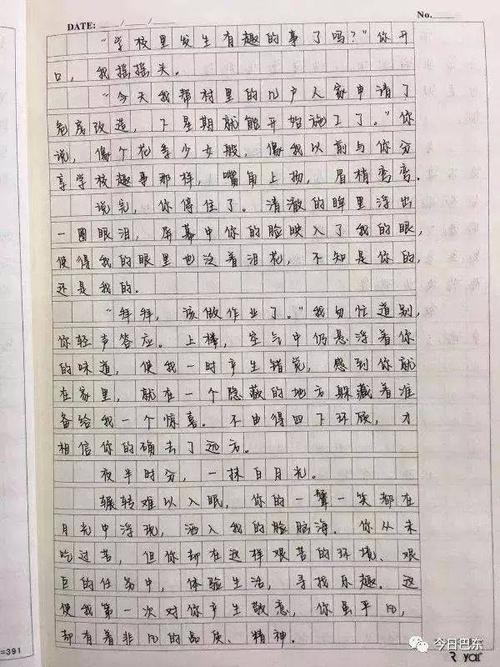 DATE: / /
No.
“学校里发生有趣的事了吗?”你开
口,我摇摇头。
“今天我帮村里的几户人家申请了
危房改造,下星期就能开始施工了。”你
说,像个花季少女般,像我以前与你分
享学校趣事那样,嘴角上扬,眉梢弯弯。
说完,你停住了。清澈的眸里浮出
一圈眼泪,屏幕中你的脸映入了我的眼,
使得我的眼里也泛着泪花,不知是你的,
还是我的。
“拜拜,该做作业了。”我匆忙道别,
你轻声答应。上楼,空气中仍悬浮着你
的味道,使我一时产生错觉,感到你就
在家里,就在一个隐蔽的地方躲藏着准
备给我一个惊喜。不由得四下环顾,才
相信你的确去了远方。
夜半时分,一抹白月光。
辗转难以入眠,你的一颦一笑都在
月光中浮现,洒入我的脑海。你从未
吃过苦,但你却在这样艰苦的环境、艰
巨的任务中,体验生活,寻找乐趣。这
使我第一次对你产生敬意,你虽平凡,
却有着非凡的品质、精神。
=391
今日巴东